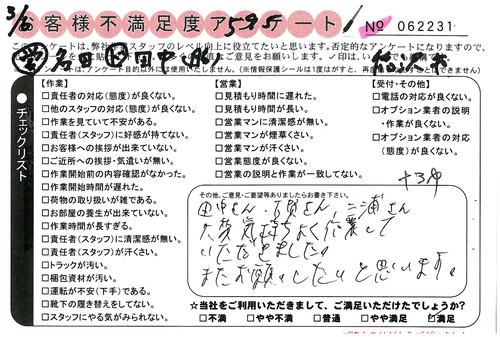 お客様不満足度アンケート
№ 062231
このアンケートは、弊社作業スタッフのレベル向上に役立てたいと思います。否定的なアンケートになりますので、
【作業】
□責任者の対応(態度)が良くない。
□他のスタッフの対応(態度)が良くない。
□作業を見ていて不安がある。
□責任者(スタッフ)に好感が持てない。
□お客様への挨拶が出来ていない。
□ご近所への挨拶・気遣いが無い。
□作業開始前の内容確認がなかった。
□作業開始時間が遅れた。
□荷物の取り扱いが雑である。
□お部屋の養生が出来ていない。
□作業時間が長すぎる。
□責任者(スタッフ)に清潔感が無い。
□責任者(スタッフ)が汗くさい。
□トラックが汚い。
□梱包資材が汚い。
□運転が不安(下手)である。
□靴下の履き替えをしてない。
□スタッフにやる気がみられない。
【営業】
□見積もり時間に遅れた。
□見積もり時間が長い。
□営業マンに清潔感が無い。
□営業マンが煙草くさい。
□営業マンが汗くさい。
□営業態度が良くない。
□営業の説明と作業が一致してない。
【受付・その他】
□電話の対応が良くない。
□オプション業者の説明
・作業が良くない。
□オプション業者の対応
(態度)が良くない。
チェックリスト
その他、ご意見・ご要望等ありましたらお書き下さい。
田中さん、古賀さん、三浦さん
大変気持ちよく作業して
いただきました。
またお願いしたいと思います。
☆当社をご利用いただきまして、ご満足いただけたでしょうか?
□不満 □やや不満 □普通 □やや満足 ☑満足